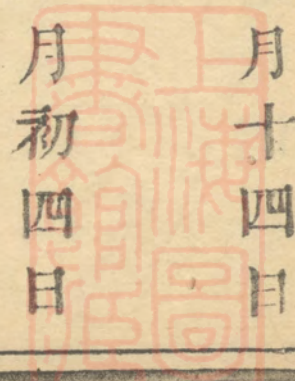 月十四日
月初四日